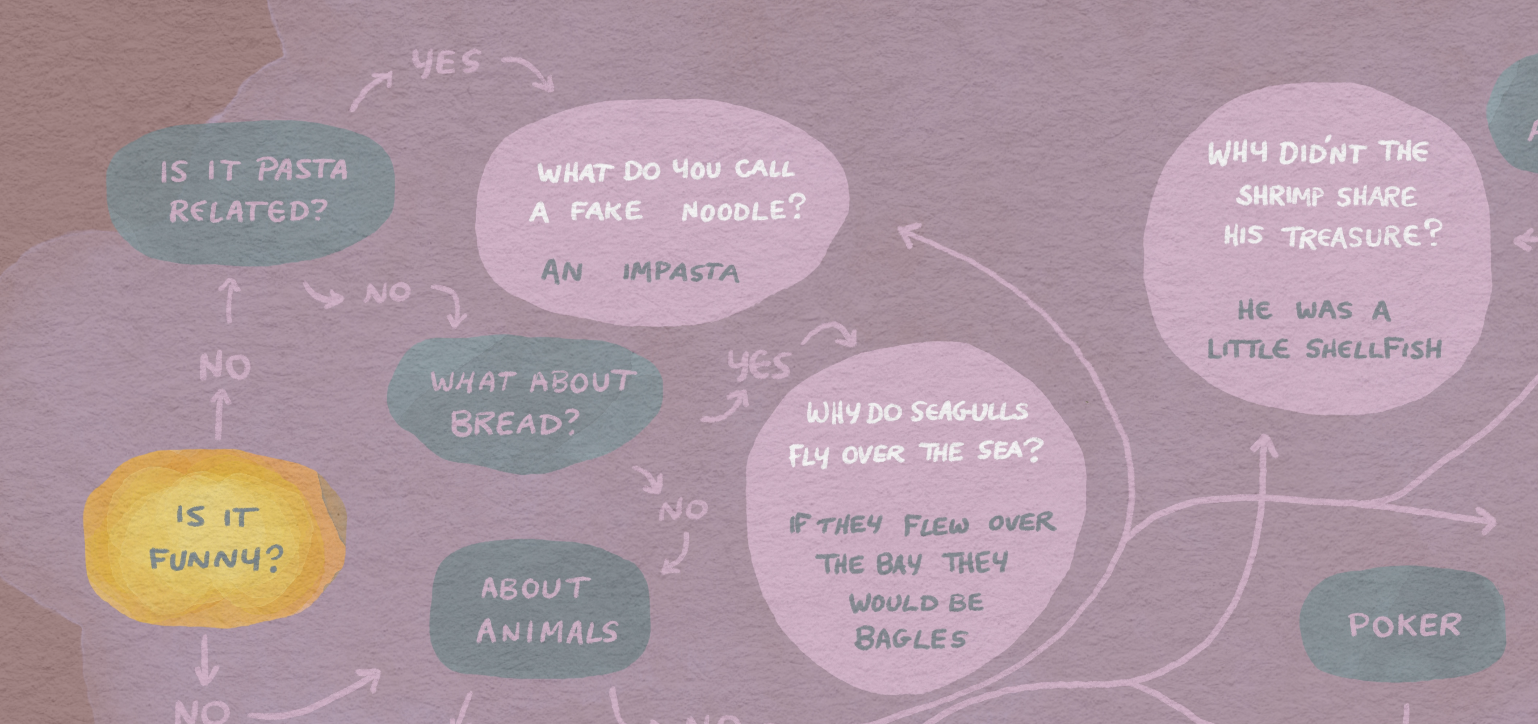 YES
IS IT PASTA
RELATED?
WHAT DO YOU CALL
A FAKE NOODLE?
AN IMPASTA
WHY DID'NT THE
SHRIMP SHARE
HIS TREASURE?
HE WAS A
LITTLE SHELLFISH
NO
NO
WHAT ABOUT
BREAD?
YES
WHY DO SEAGULLS
FLY OVER THE SEA?
IF THEY FLEW OVER
THE BAY THEY
WOULD BE
BAGLES
IS IT
FUNNY?
NO
ABOUT
ANIMALS
POKER
NO
NO